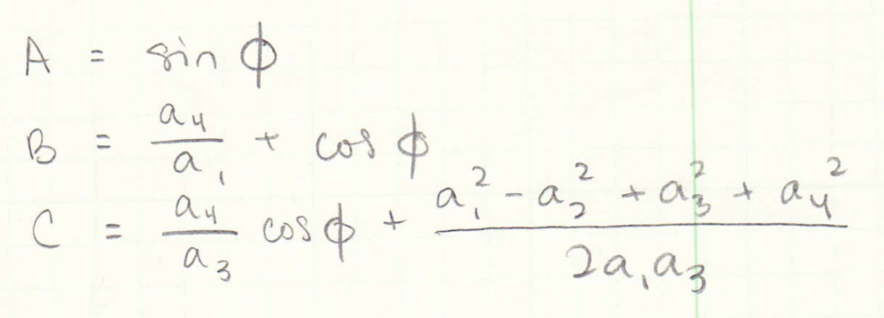 A = sin ϕ
B = a₄/a₁ + cos ϕ
C = a₄/a₃ cos ϕ + (a₁² - a₂² + a₃² + a₄²)/(2a₁a₃)